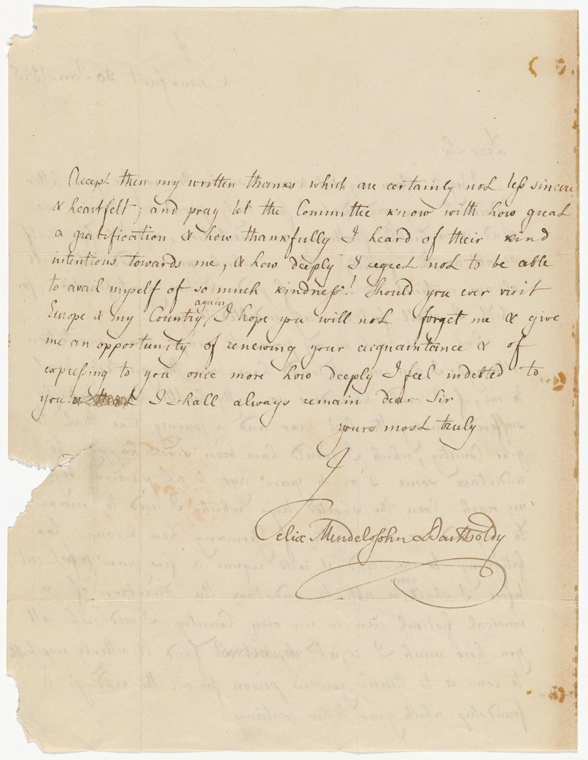 Accept then my written thanks which are certainly not less sincere
& heartfelt; and pray let the Committee know with how great
a gratification & how thankfully I heard of their kind
intentions towards me, & how deeply I regret not to be able
to avail myself of so much kindness! Should you ever visit
again
Europe & my Country, I hope you will not forget me & give
me an opportunity of renewing your acquaintance & of
expressing to you once more how deeply I feel indebted to
you I shall always remain dear Sir
yours most truly
Felix Mendelssohn Bartholdy